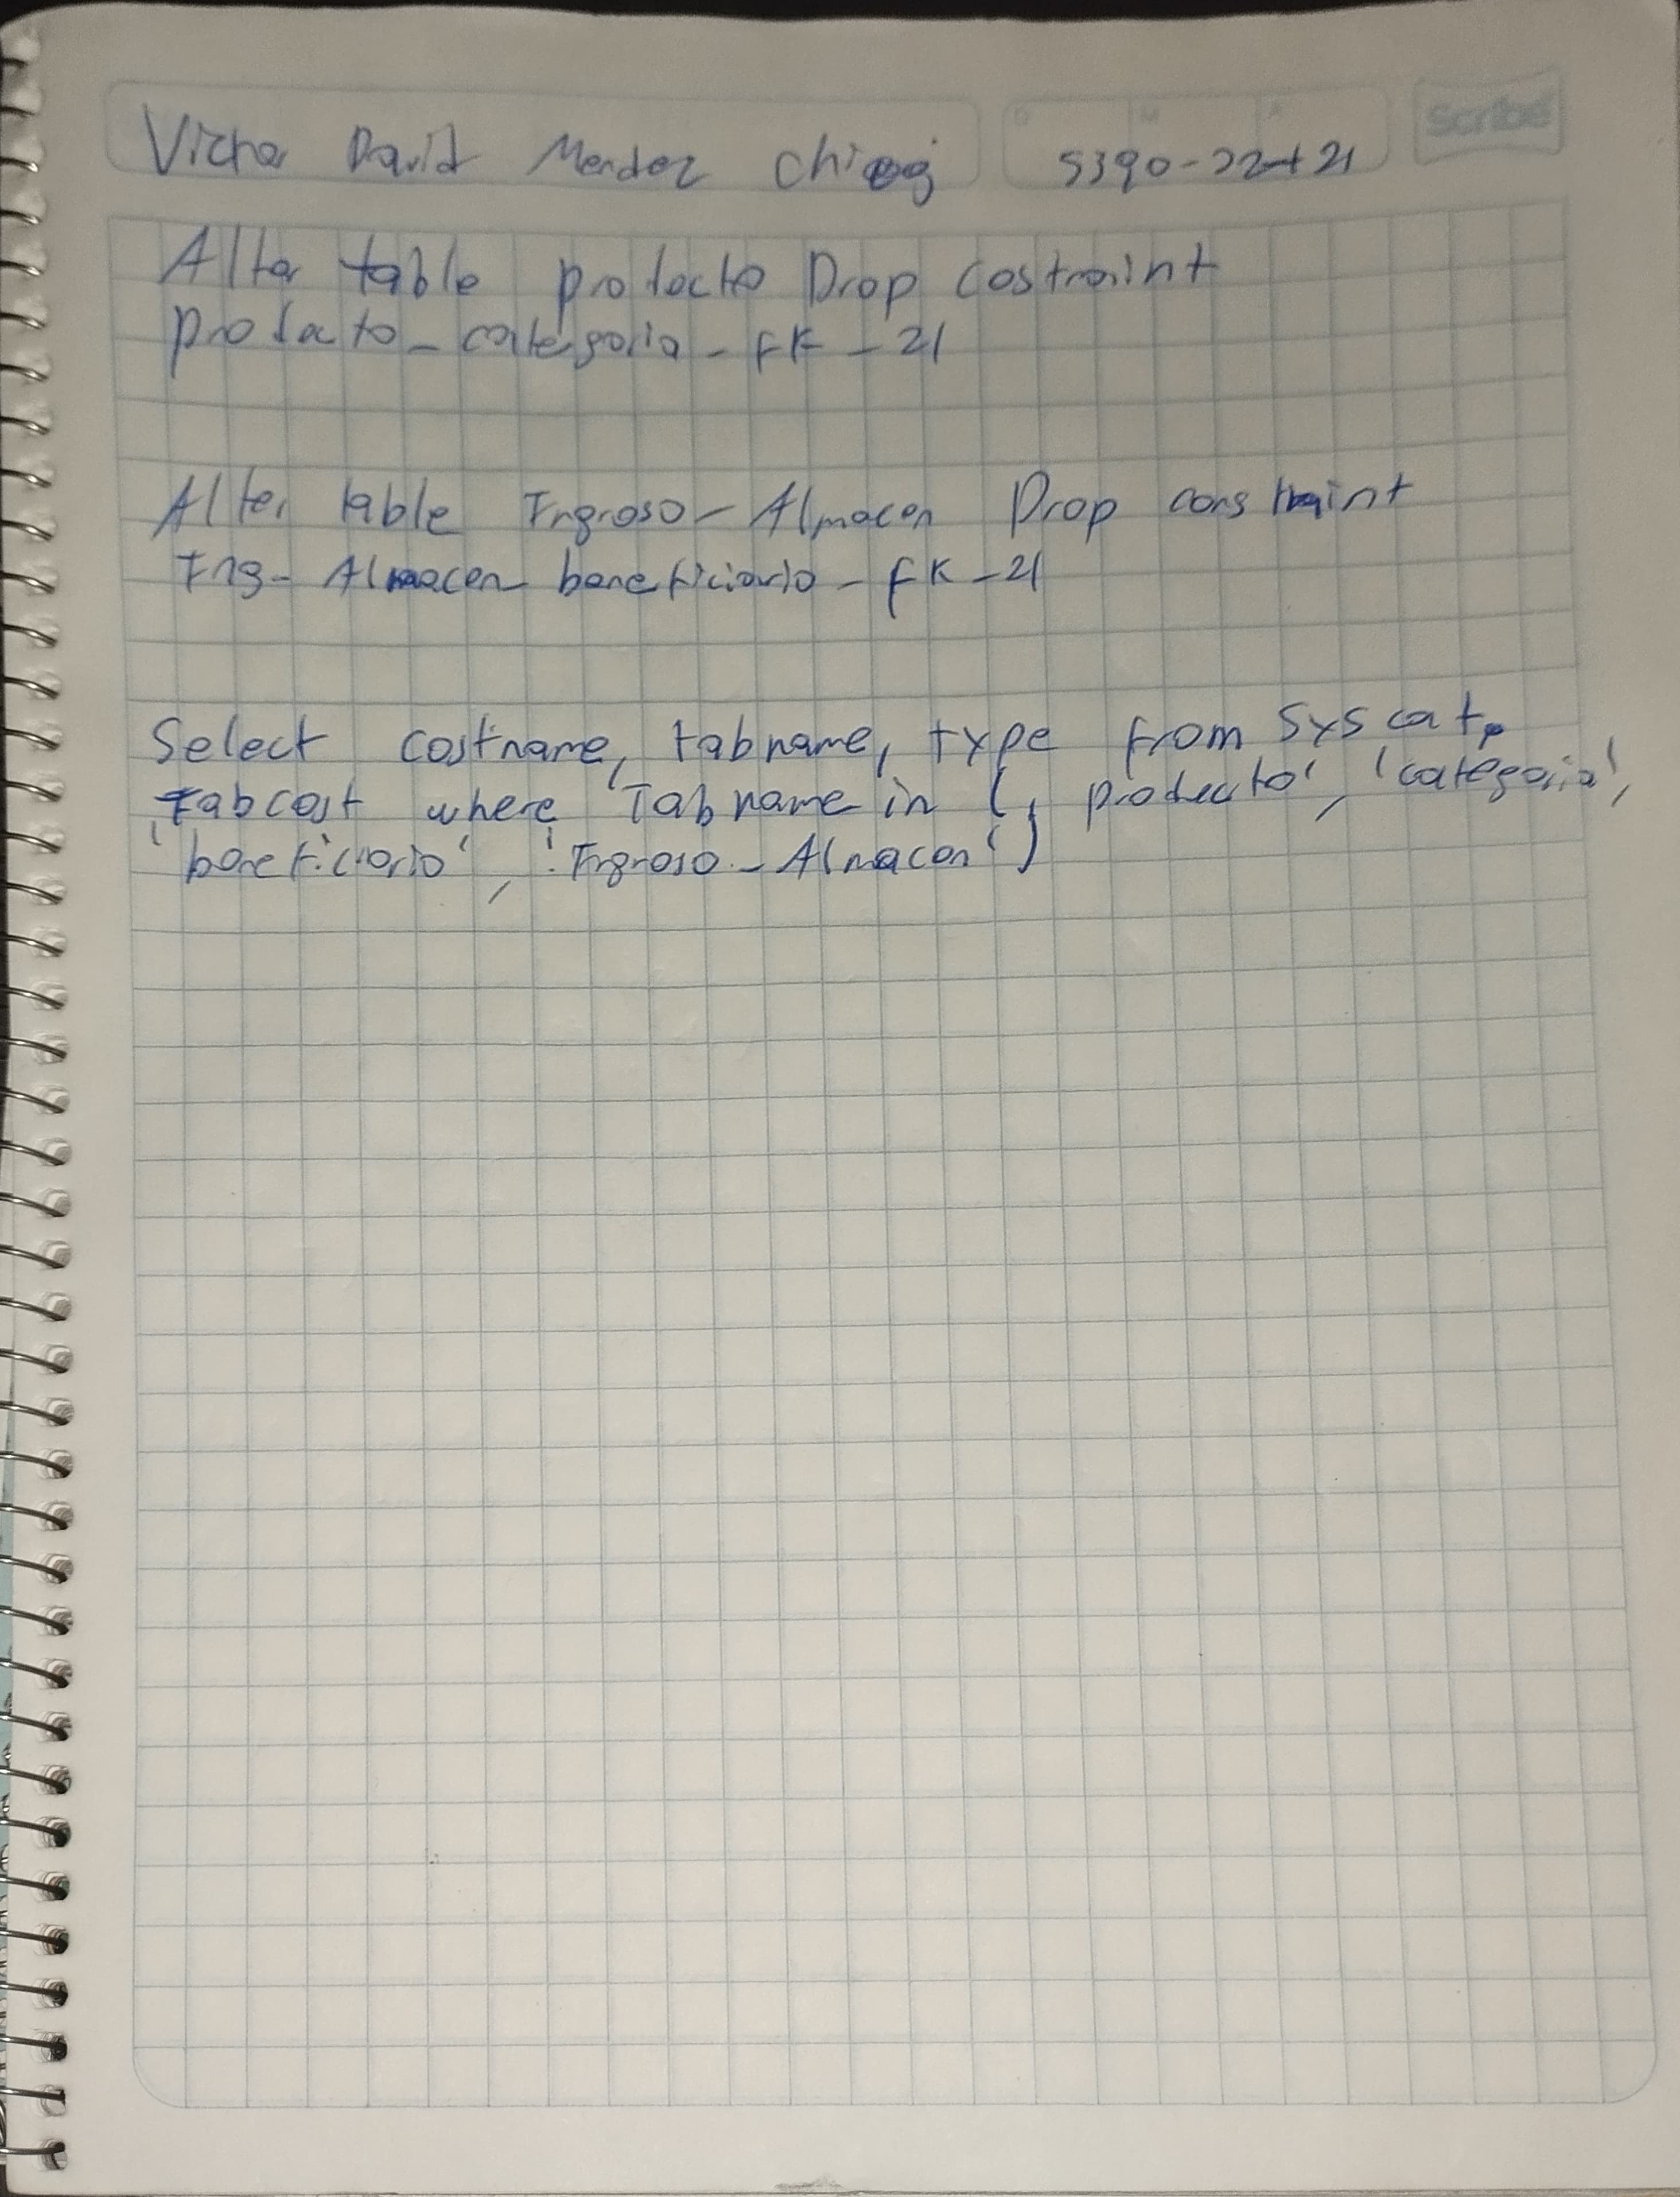 Victor David Mendez 5390-22-21
Scribe
Alter table producto Drop costraint
producto_categoria_FK_21
Alter table Ingreso_Almacen Drop constraint
Ing_Almacen_beneficiario_FK_21
Select costname, tabname, type from Syscat.
tabcost where Tabname in ('producto', 'categoria',
'beneficiario', 'Ingreso_Almacen')